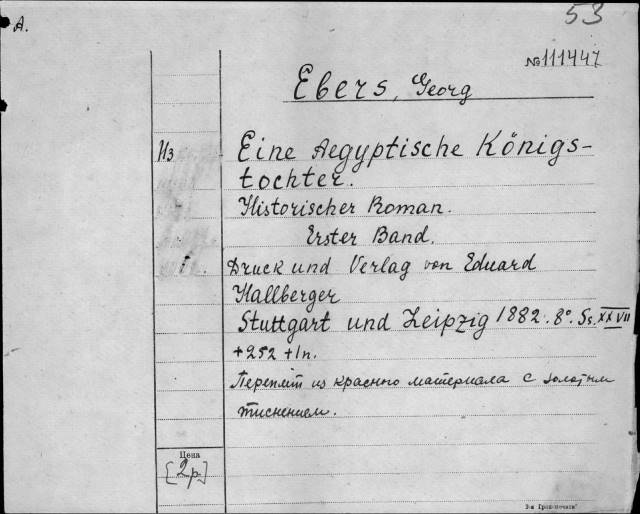 53
A.
№111447
Ebers, Georg
Из
Eine Aegyptische Königs-
tochter.
Historischer Roman.
Erster Band.
Druck und Verlag von Eduard
Hallberger
Stuttgart und Leipzig 1882. 8°. Ss. XXVII
+252 +1n.
Переплёт из красного материала с золотым
тиснением.
Цена
[2р]